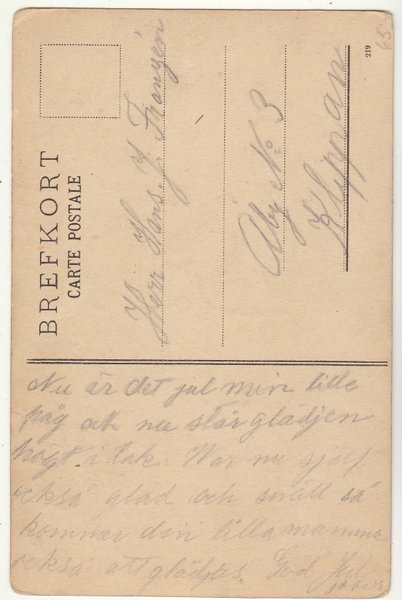 BREFKORT
CARTE POSTALE
Herr Hans. J. Franzén
Åby No 3
Klippan
219
65
Nu är det jul min lille
påg och nu står glädjen
högt i tak. Var nu själf
också glad och snäll så
kommer din lilla mamma
också att glädjas. God Jul